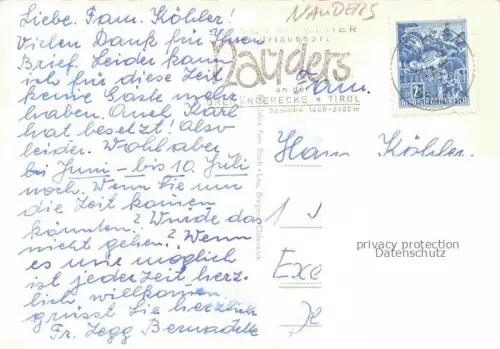 Liebe Fam. Köhler!
Vielen Dank für Ihren
Brief. Leider kann
ich für diese Zeit
keine Gäste mehr
haben. Auch Karl
hat besetzt! Also
leider. Wohl aber
bis Juni - bis 10. Juli
noch. Wenn Sie um
die Zeit kommen
könnten? Würde das
nicht gehen? Wenn
es nur möglich
ist jederzeit herz-
lich willkommen.
grüsst Sie herzlich
Fr. Jegg Bernadette
NAUDERS
Urlaubsort
Nauders
an der
DREILÄNDERECKE * TIROL
Seehöhe 1400-2800m
2S
REPUBLIK ÖSTERREICH
Fam.
Hans Köhler
privacy protection
Datenschutz